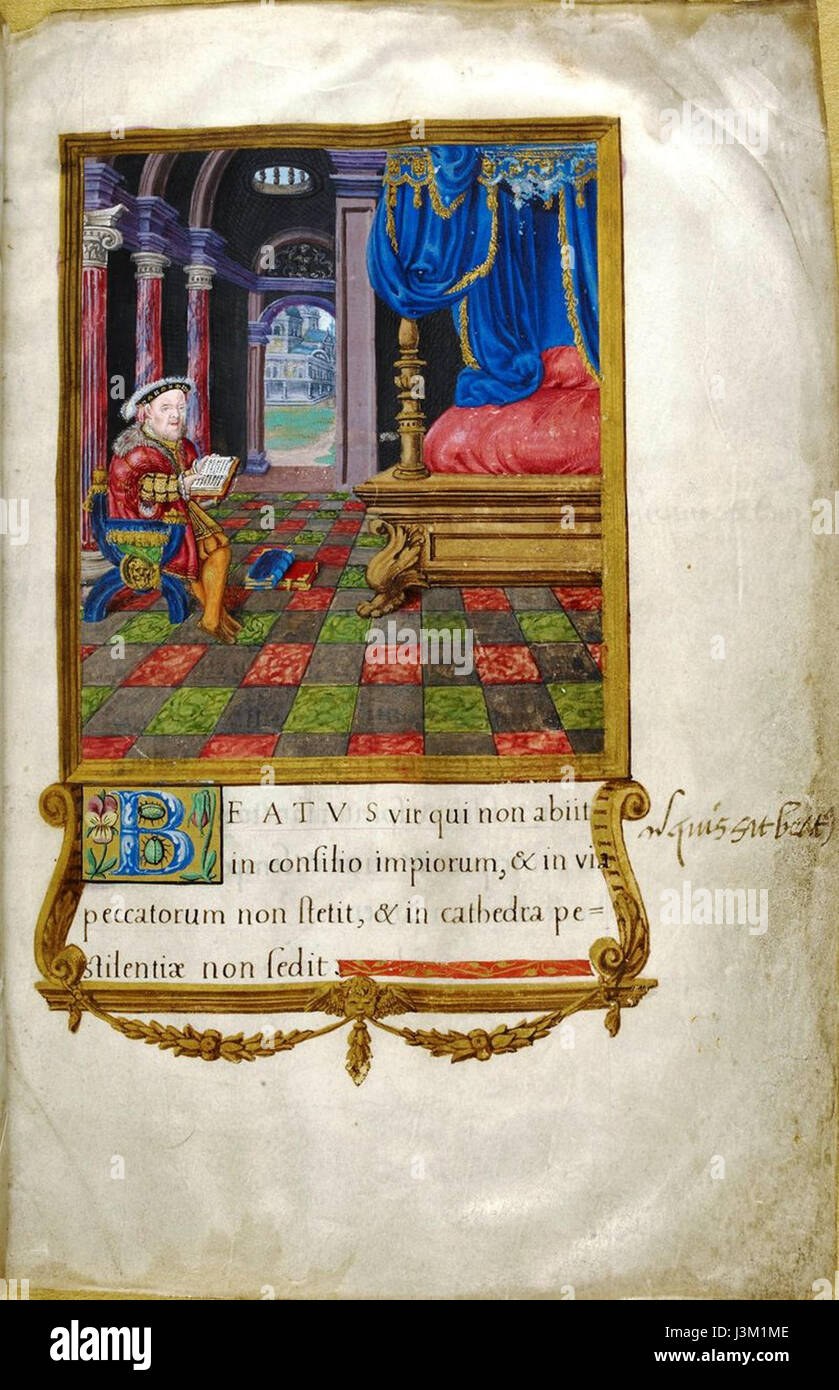 BEATVS vir qui non abiit
in conſilio impiorum, & in via
peccatorum non ſtetit, & in cathedra pe=
ſtilentiæ non ſedit.
quis sit beat
alamy
Image ID: J3M1ME
www.alamy.com